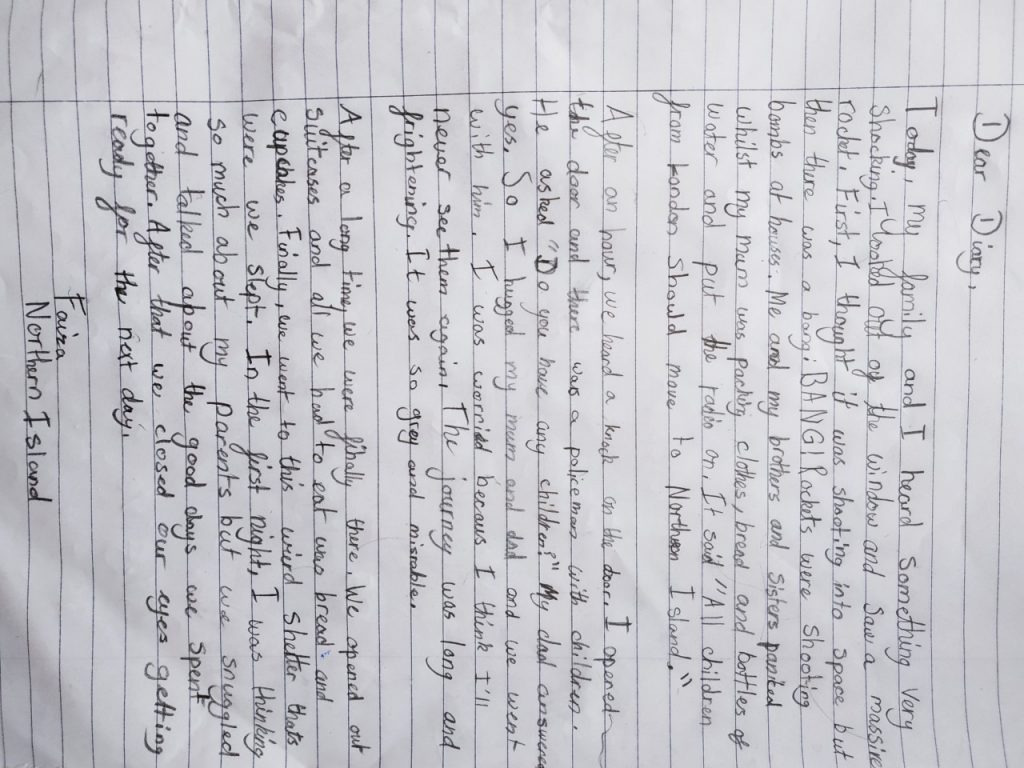 Dear Diary,
Today, my family and I heard something very
shocking. I looked out of the window and saw a massive
rocket. First, I thought it was shooting into space but
then there was a bang. BANG! Rockets were shooting
bombs at houses. Me and my brothers and sisters panicked
whilst my mum was packing clothes, bread and bottles of
water and put the radio on. It said "All children
from London should move to Northern Island."
After an hour, we heard a knock on the door. I opened
the door and there was a policeman with children.
He asked "Do you have any children?" My dad answered
yes. So I hugged my mum and dad and we went
with him. I was worried becaus I think I'll
never see them again! The journey was long and
frightening. It was so grey and misrable.
After a long time, we were finally there. We opened out
suitcases and all we had to eat was bread and
cupcakes. Finally, we went to this wierd shelter thats
were we slept. In the first night, I was thinking
so much about my parents but we snuggled
and talked about the good days we spent
together. After that we closed our eyes getting
ready for the next day.
Faiza
Northern Island